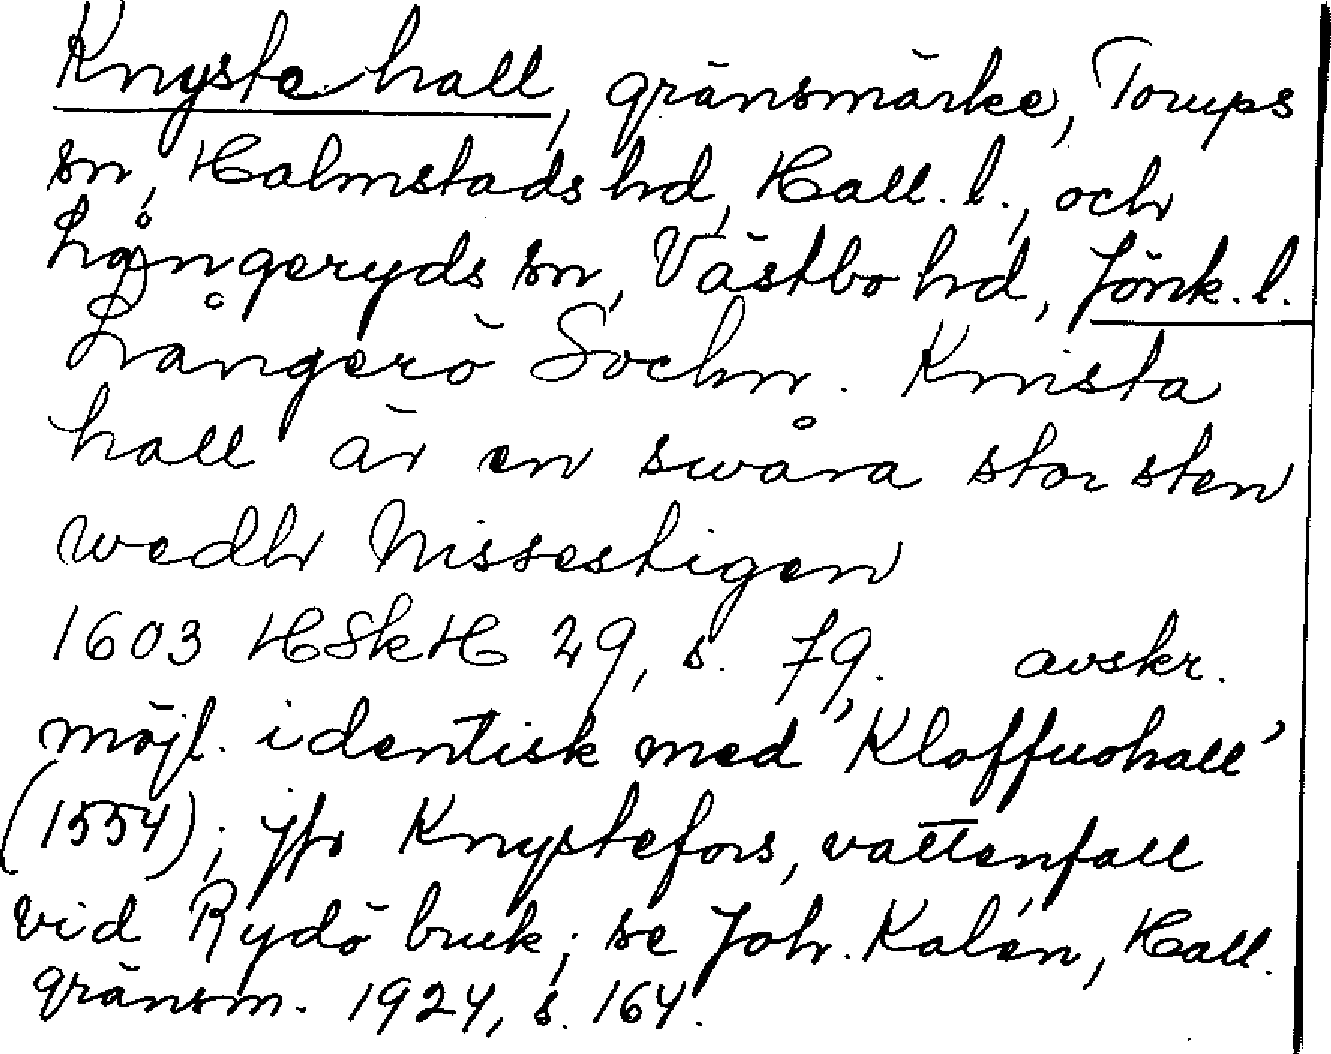 Knystehall, gränsmärke, Torups
sn, Halmstads hd, Hall. l., och
Långeryds sn, Västbo hd, Jönk. l.
Långerö Sochn. Knista
hall är en swåra stor sten
wedh Nissestigen
1603 HSkH 29, s. 79. avskr.
möjl. identisk med 'Kloffuohall'
(1554); jfr Knystefors, vattenfall
vid Rydö bruk; se Joh. Kalén, Hall.
gränsm. 1924, s. 164.